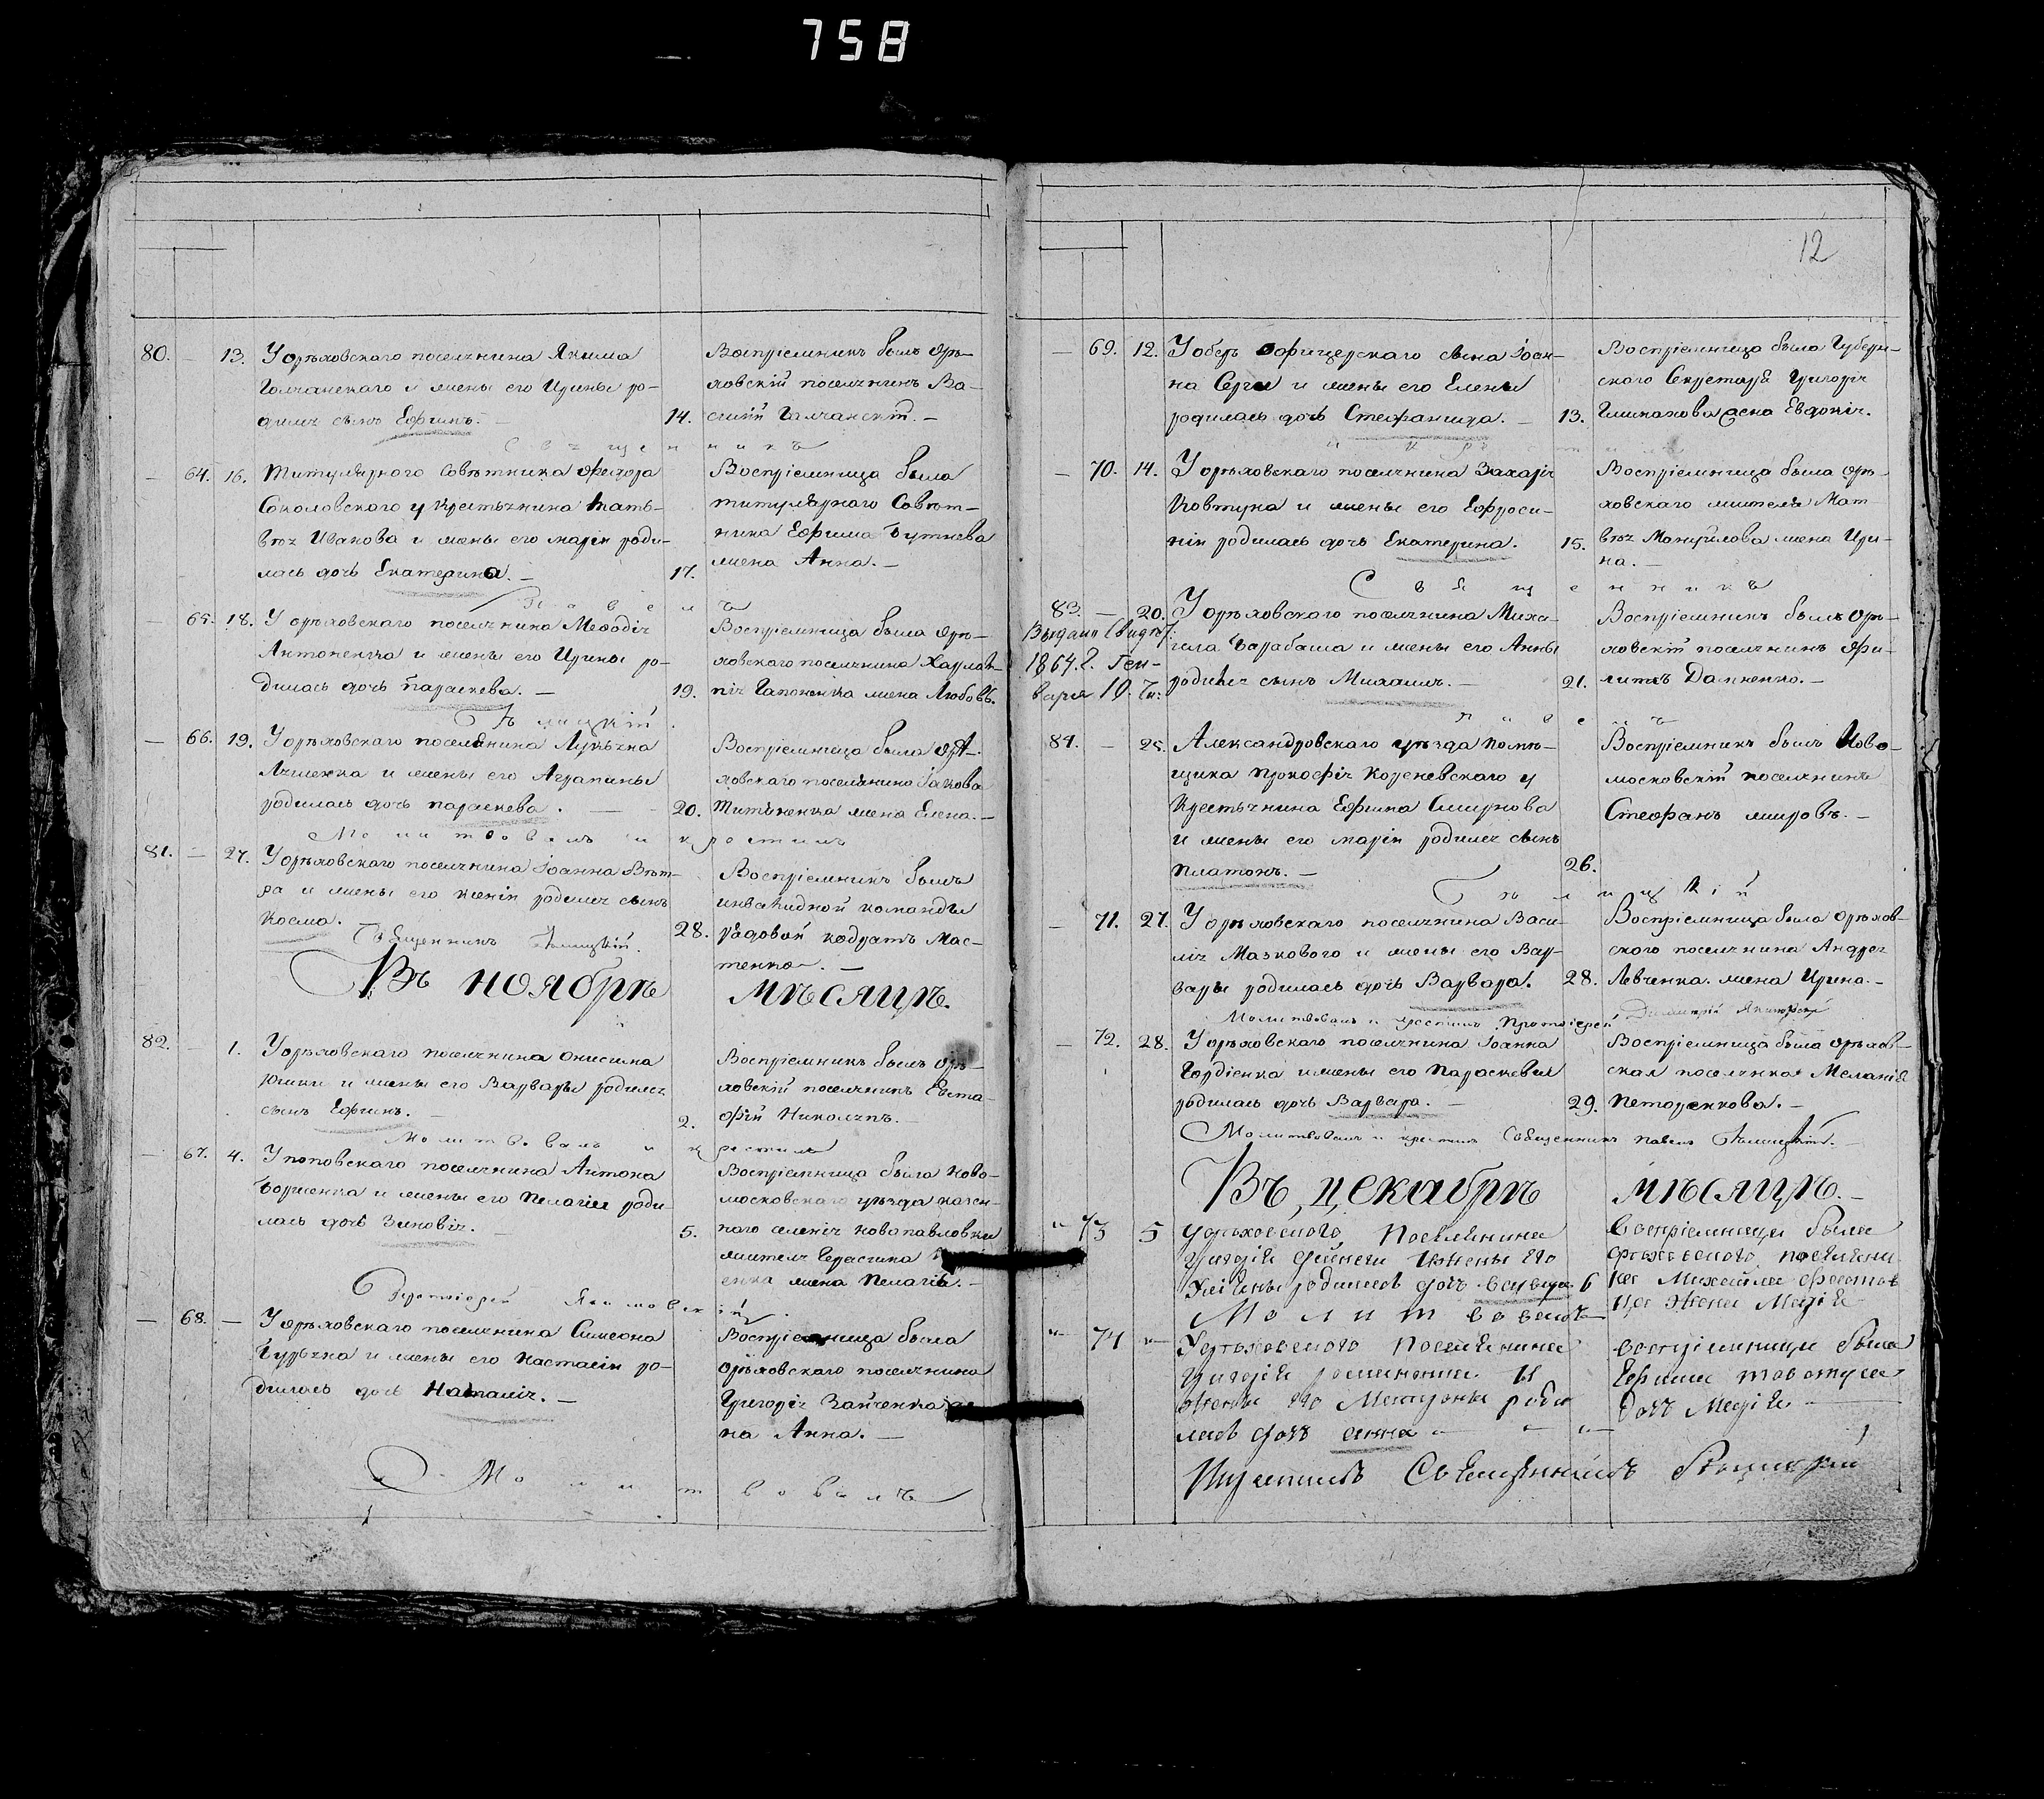 758
80. — 13. У орѣховскаго поселянина Якима
Галчанскаго и жены его Ирины ро-
дился сынъ Ефимъ. —
14.
Воспріемникъ былъ Орѣ-
ховскій поселянинъ Ва-
силій Галчанскій. —
Священникъ
— 64. 16. Титулярного Совѣтника Феодора
Соколовскаго у крестьянина Мать-
вѣя Иванова и жены его Маріи роди-
лась дочь Екатерина. —
17.
Воспріемница была
титулярнаго Совѣт-
ника Ефима Бутнева
жена Анна. —
Павелъ
— 65. 18. У орѣховскаго поселянина Меѳодія
Антоненка и жены его Ирины ро-
дилась дочь Параскева. —
19.
Воспріемница была Орѣ-
ховскаго поселянина Харлам-
пія Гапоненка жена Любовь.
— 66. 19. У орѣховскаго поселянина Лукьяна
и жены его Агрипины
родилась дочь Параскева. —
20.
Воспріемница была Орѣ-
ховскаго поселянина Іакова
Титаренка жена Елена. —
Молитвовалъ и крестилъ
81. — 27. У орѣховскаго поселянина Іоанна Вѣт-
ра и жены его Ксеніи родился сынъ
Косма.
28.
Воспріемникъ былъ
инвалидной команды
рядовой Кодратъ Мас-
тенко. —
Священникъ
Въ ноябрѣ мѣсяцѣ.
82. 1. У орѣховскаго поселянина Онисима
Юшки и жены его Варвары родился
сынъ Ефимъ. —
2.
Воспріемникъ былъ Орѣ-
ховскій поселянинъ Евста-
фій
Молитвовалъ и крестилъ
— 67. 4. У поповскаго поселянина Антона
Борженка и жены его Пелагіи роди-
лась дочь Зиновія. —
5.
Воспріемница была Ново-
московскаго уѣзда казен-
наго селенія Новопавловки
жителя Герасима
енка жена Пелагія. —
Протоіерей Якимовскій
— 68. — У орѣховскаго поселянина Симеона
Гурьяна и жены его Настасіи ро-
дилась дочь Наталія. —
Воспріемница была
Орѣховскаго поселянина
Григорія Зайченка же-
на Анна. —
Молитвовалъ
12
— 69. 12. У оберъ офицерскаго сына Іоан-
на Серги и жены его Елены
родилась дочь Стефанида. —
13.
Воспріемница была Губерн-
ского Секретаря Григорія
жена Евдокія.
и кр
— 70. 14. У орѣховскаго поселянина Захарія
Ковтуна и жены его Ефроси-
ніи родилась дочь Екатерина.
15.
Воспріемница была Орѣ-
ховскаго жителя Мат-
вѣя Мануйлова жена Ири-
на. —
Священникъ
83. — 20. У орѣховскаго поселянина Миха-
ила Барабаша и жены его Анны
родился сынъ Михаилъ. —
21.
Выдано Свидѣт.
1864. г. Ген-
варя 10. дн.
Воспріемникъ былъ Орѣ-
ховскій поселянинъ Фи-
липъ Даценко. —
Павелъ
84. — 25. Александровскаго уѣзда помѣ-
щика Прокофія Кореневскаго у
Крестьянина Ефима Смирнова
и жены его Маріи родился сынъ
Платонъ. —
26.
Воспріемникъ былъ Ново-
московскій поселянинъ
Стефанъ Мировъ. —
— 71. 27. У орѣховскаго поселянина Васи-
лія Мазкового и жены его Вар-
вары родилась дочь Варвара.
28.
Воспріемница была Орѣхов-
ского поселянина Андрея
Левченка жена Ирина. —
Молитвовалъ и крестилъ Протоіерей Димитрій Якимовскій
— 72. 28. У орѣховскаго поселянина Іоанна
Гордіенка и жены его Параскевы
родилась дочь Варвара. —
29.
Воспріемница была Орѣхов-
ская поселянка Меланія
Петоренкова. —
Молитвовалъ и крестилъ Священникъ Павелъ
Въ декабрѣ мѣсяцѣ. —
73 5 У орѣховскаго Поселянина
Григорія и жены его
Уліяны родилась дочь
6
Воспріемница была
Орѣховского поселяни
на Михаила
жена Марія
Молитвовалъ
74 У орѣховскаго Поселянина
Григорія и
жены его Матроны роди
лась дочь Анна
Воспріемница была
Ефима
дочь Марія
Крестилъ Священникъ